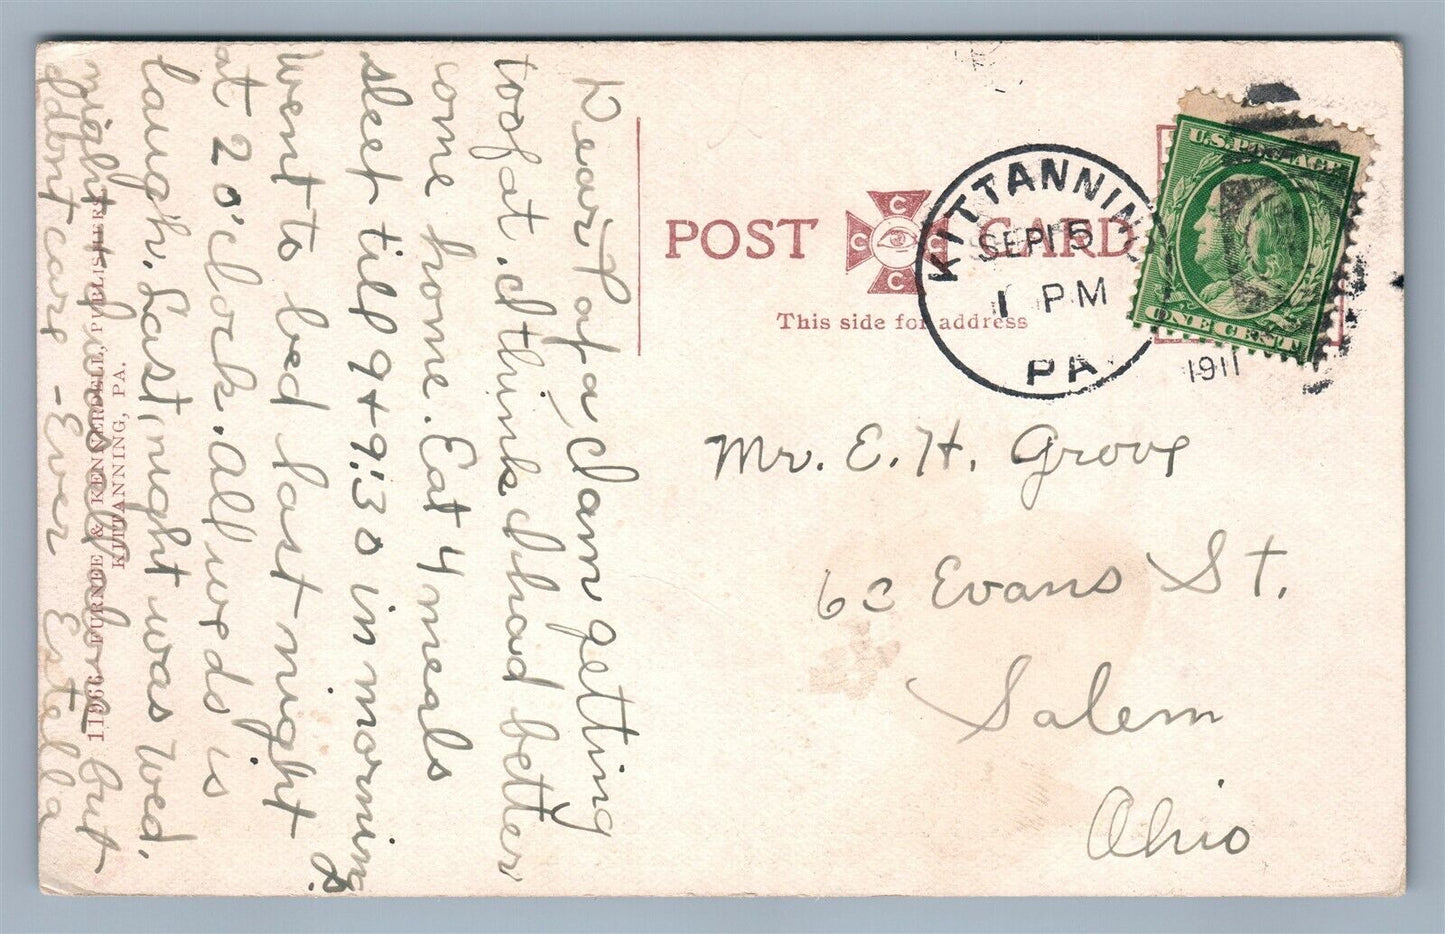 Dear Papa, I am getting
too fat. I think I had better
come home. Eat 4 meals
sleep till 9 + 9:30 in morning
Went to bed last night
at 2 o'clock. All we do is
laugh. Last night was Wed.
night + but
I don't care - Ever Estella
11966 FURNEE & KENNERDELL, PUBLISHERS
KITTANNING, PA.
POST CARD
C C C C
This side for address
KITTANNING
SEP 15
1 PM
PA.
1911
U.S. POSTAGE
ONE CENT
Mr. E. H. Grove
62 Evans St.
Salem
Ohio